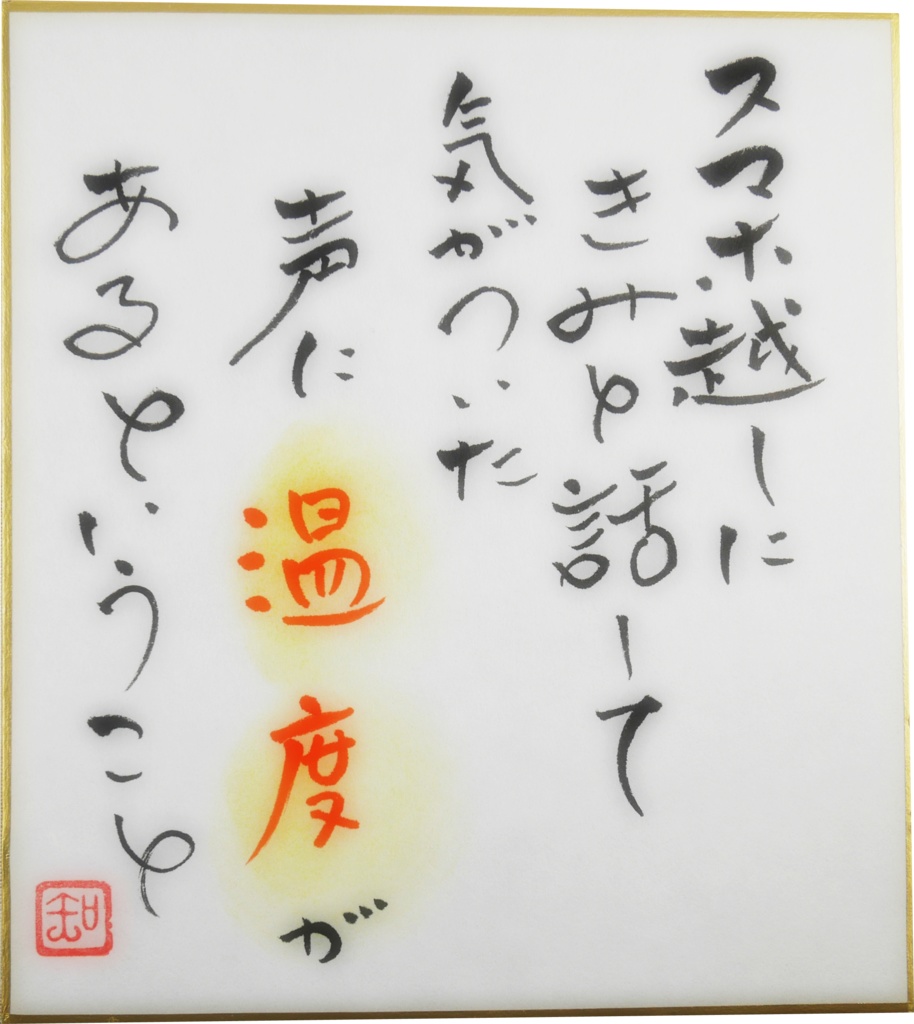 スマホ越しに
きみと話して
気がついた
声に温度が
あるということ
知